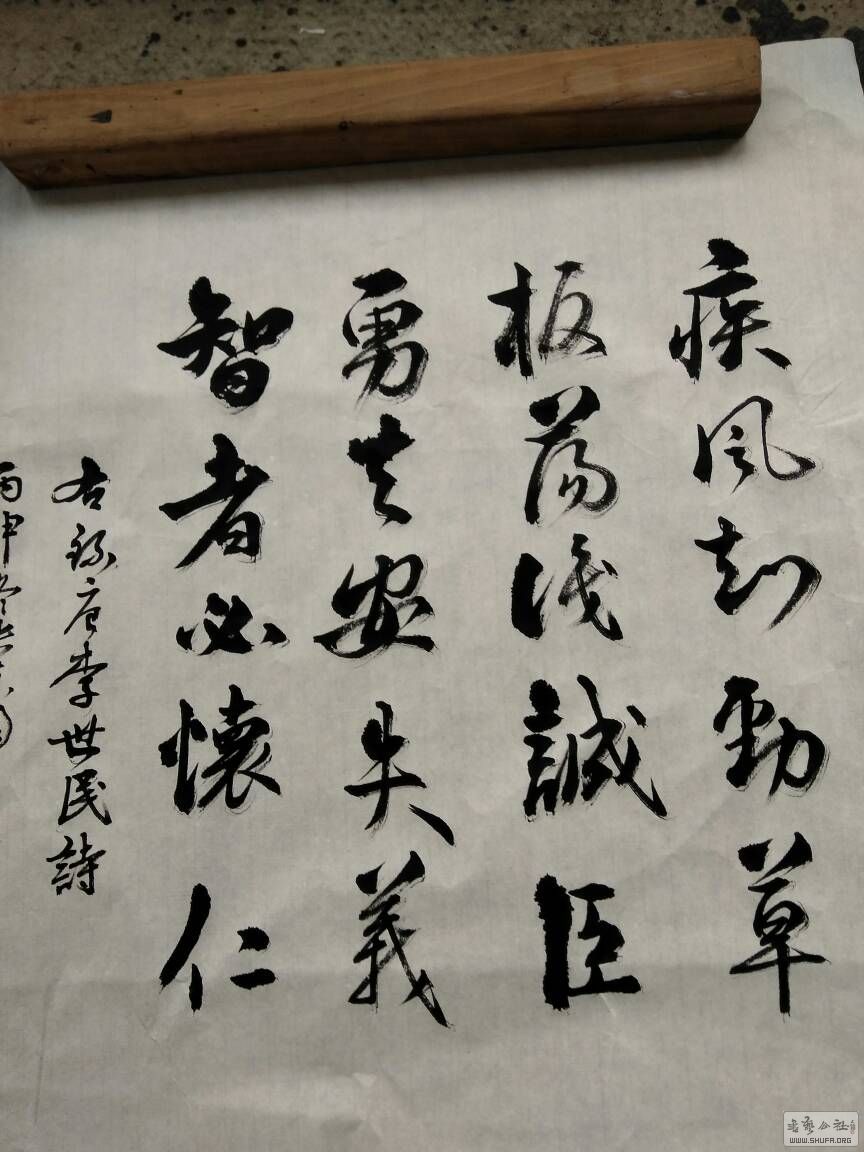 疾風知勁草
板蕩識誠臣
勇夫安失義
智者必懷仁
右録唐李世民詩
丙申冬
書藝公社
WWW.SHUFA.ORG